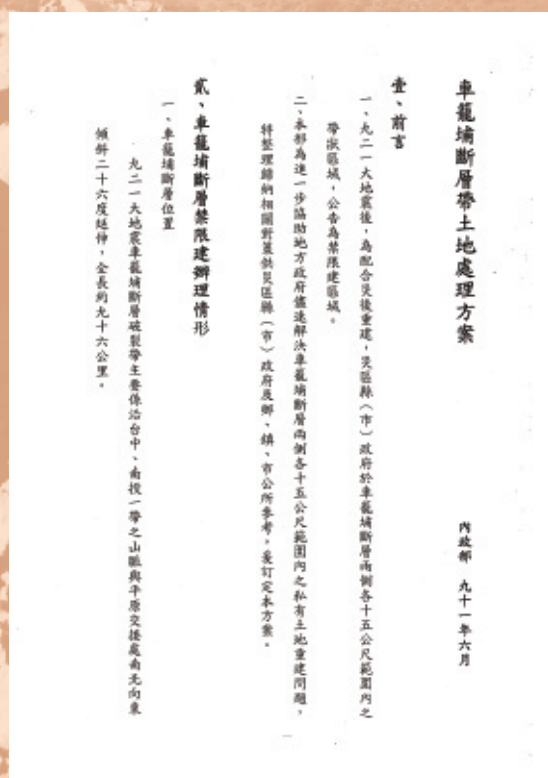 車籠埔斷層帶土地處理方案
內政部 九十一年六月
壹、前言
一、九二一大地震後,為配合災後重建,災區縣(市)政府於車籠埔斷層兩側各十五公尺範圍內之
帶狀區域,公告為禁限建區域。
二、本部為進一步協助地方政府儘速解決車籠埔斷層兩側各十五公尺範圍內之私有土地重建問題,
特整理歸納相關對策供災區縣(市)政府及鄉、鎮、市公所參考,爰訂定本方案。
貳、車籠埔斷層禁限建辦理情形
一、車籠埔斷層位置
九二一大地震車籠埔斷層破裂帶主要係沿台中、南投一帶之山脈與平原交接處南北向東
傾斜二十六度延伸,全長約九十六公里。
一